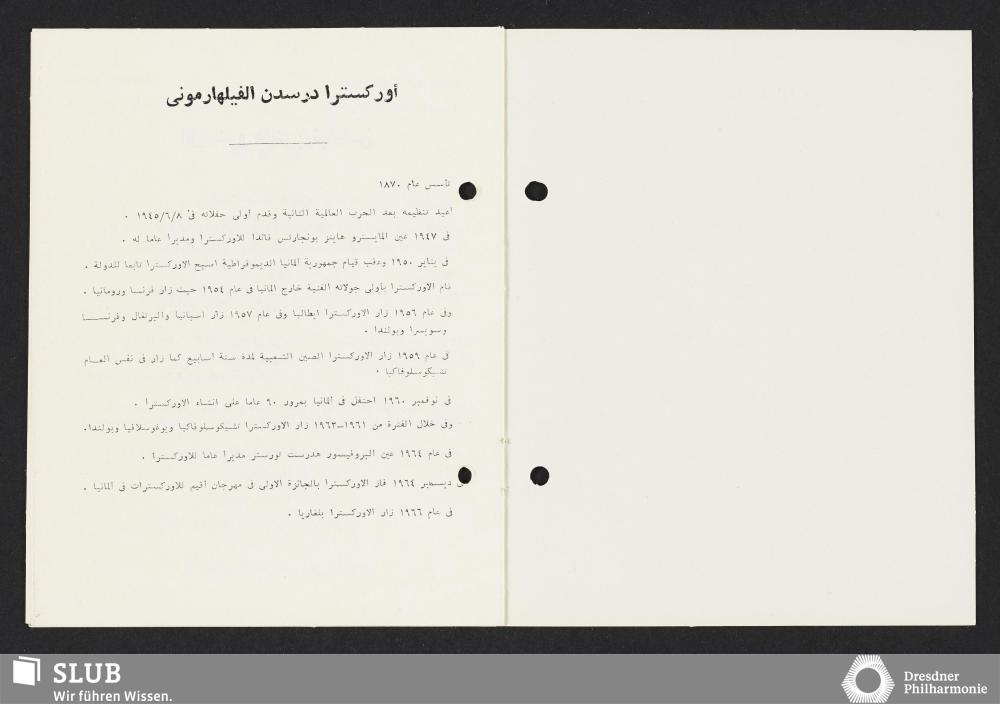 أوركسترا درسدن الفيلهارمونى
تأسس عام ١٨٧٠
اعيد تنظيمه بعد الحرب العالمية الثانية وقدم أولى حفلاته فى ١٩٤٥/٦/٨ .
فى ١٩٤٧ عين المايسترو هاينز بونجارتس قائدا للاوركسترا ومديرا عاما له .
فى يناير ١٩٥٠ وعقب قيام جمهورية ألمانيا الديموقراطية اصبح الاوركسترا تابعا للدولة .
قام الاوركسترا بأولى جولاته الفنية خارج المانيا فى عام ١٩٥٤ حيث زار فرنسا ورومانيا .
وفى عام ١٩٥٦ زار الاوركسترا ايطاليا وفى عام ١٩٥٧ زار اسبانيا والبرتغال وفرنســـا
وسويسرا وبولندا .
فى عام ١٩٥٩ زار الاوركسترا الصين الشعبية لمدة ستة أسابيع كما زار فى نفس العـام
تشيكوسلوفاكيا .
فى نوفمبر ١٩٦٠ احتفل فى ألمانيا بمرور ٩٠ عاما على انشاء الاوركسترا .
وفى خلال الفترة من ١٩٦١–١٩٦٣ زار الاوركسترا تشيكوسلوفاكيا ويوغوسلافيا وبولندا.
فى عام ١٩٦٤ عين البروفيسور هدرست فورستر مديرا عاما للاوركسترا .
ديسمبر ١٩٦٤ فاز الاوركسترا بالجائزة الاولى فى مهرجان أقيم للاوركسترات فى ألمانيا .
فى عام ١٩٦٦ زار الاوركسترا بلغاريا .
SLUB
Wir führen Wissen.
Dresdner
Philharmonie